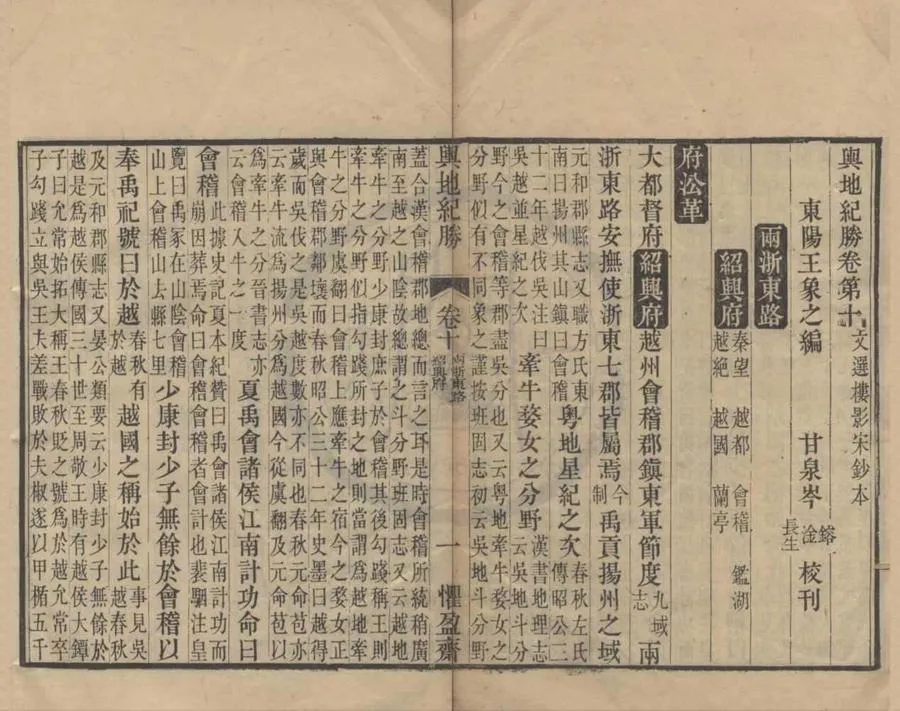 輿地紀勝卷第十 文選樓影宋鈔本
東陽王象之編 甘泉岑 鎔 淦 長生 校刊
兩浙東路
紹興府 秦望 越都 會稽 鑑湖
越絕 越國 蘭亭
府㳂革
大都督府紹興府越州會稽郡鎮東軍節度九域志兩
浙東路安撫使浙東七郡皆屬焉今制禹貢揚州之域
元和郡縣志又職方氏東南曰揚州其山鎮曰會稽 粵地星紀之次 春秋左氏傳昭公三
十二年越伐吳注曰吳越並星紀之次 牽牛婺女之分野 漢書地理志云吳地斗分
野今之會稽等郡盡吳分也又云粵地牽牛婺女之
分野似有不同象之謹按班固志初云吳地斗分野
輿地紀勝 卷十 兩浙東路 紹興府 一 懼盈齋
蓋合漢會稽郡地總而言之耳是時會稽所統稍廣
南至越之山陰故總謂之斗分野班固志又云越地
牽牛之分野少康封庶子於會稽其後勾踐稱王則
牽牛之分野似指勾踐所封之地則當謂爲越地牽
牛之分野虞翻曰會稽上應牽牛之宿今之婺女正
與會稽郡鄰壤而春秋昭公三十二年史墨曰越得
歲而吳伐之是吳越度數亦不同也春秋元命苞亦
云牽牛流爲揚州分爲越國今從虞翻及元命苞亦
爲牽牛之分晉書志亦云會稽入牛之一度 夏禹會諸侯江南計功命曰
會稽 此據史記夏本紀贊曰禹會諸侯江南計功而
崩因葬焉命曰會稽會稽者會計也裴駰注皇
覽曰禹冢在山陰會稽山上會稽山去縣七里 少康封少子無餘於會稽以
奉禹祀號曰於越 春秋有於越 越國之稱始於此 事見吳越春秋
及元和郡縣志又晏公類要云少康封少子無餘於
越是爲越侯傳國三十世至周敬王時有越侯大鐔
子曰允常始拓大稱王春秋貶之號爲於越允常卒
子勾踐立與吳王夫差戰敗於夫椒遂以甲楯五千